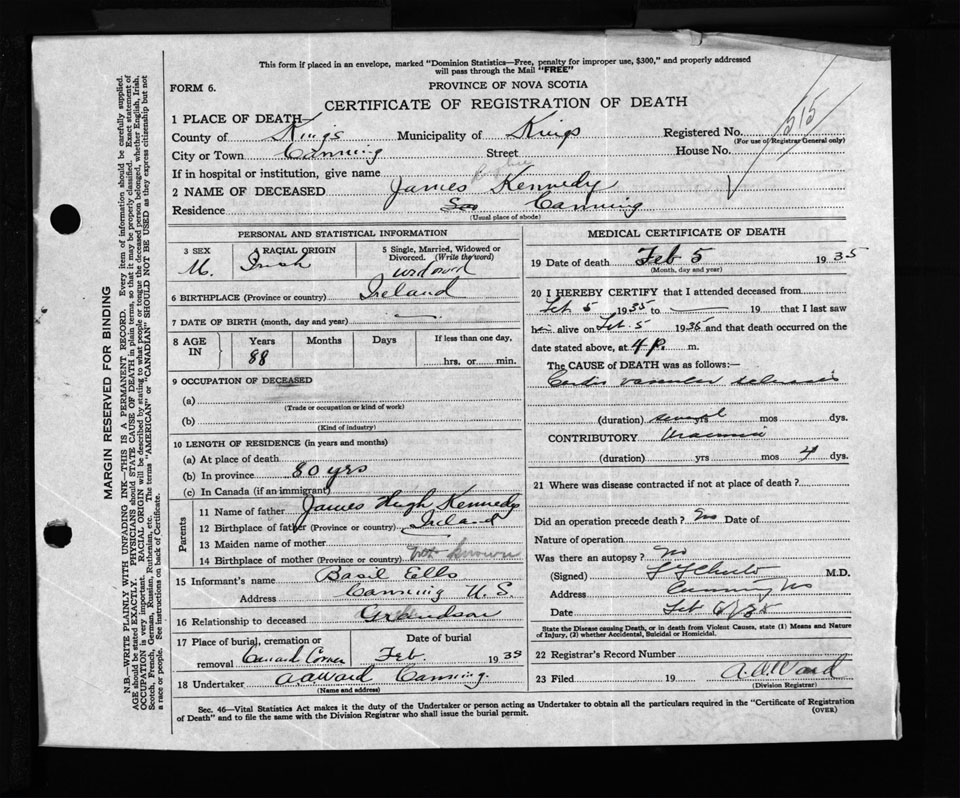 This form if placed in an envelope, marked "Dominion Statistics—Free, penalty for improper use, $300," and properly addressed
will pass through the Mail "FREE"
FORM 6.
PROVINCE OF NOVA SCOTIA
CERTIFICATE OF REGISTRATION OF DEATH
515
1 PLACE OF DEATH—
County of Kings Municipality of Kings Registered No.
(For use of Registrar General only)
City or Town Canning Street House No.
If in hospital or institution, give name
2 NAME OF DECEASED James Kennedy
Residence Canning
(Usual place of abode)
PERSONAL AND STATISTICAL INFORMATION
3 SEX 4 RACIAL ORIGIN 5 Single, Married, Widowed or
Divorced. (Write the word)
M. Irish widowed
6 BIRTHPLACE (Province or country) Ireland
7 DATE OF BIRTH (month, day and year) —
8 AGE IN Years Months Days If less than one day,
88 hrs. or min.
9 OCCUPATION OF DECEASED
(a)
(Trade or occupation or kind of work)
(b)
(Kind of industry)
10 LENGTH OF RESIDENCE (in years and months)
(a) At place of death
(b) In province 80 yrs
(c) In Canada (if an immigrant)
Parents
11 Name of father James Hugh Kennedy
12 Birthplace of father (Province or country) Ireland
13 Maiden name of mother
14 Birthplace of mother (Province or country) Not known
15 Informant's name Basil Ells
Address Canning N.S
16 Relationship to deceased Grandson
17 Place of burial, cremation or Date of burial
removal Corner Feb. 1935
18 Undertaker A.A Ward Canning.
(Name and address)
MEDICAL CERTIFICATE OF DEATH
19 Date of death Feb 5 1935
(Month, day and year)
20 I HEREBY CERTIFY that I attended deceased from
Feb 5 1935 to — 19 that I last saw
h alive on Feb. 5 1935 and that death occurred on
date stated above, at 4 p. m.
The CAUSE of DEATH was as follows:—
vascular sclerosis
(duration) several yrs mos dys.
CONTRIBUTORY Uraemia
(duration) yrs mos 4 dys.
21 Where was disease contracted if not at place of death?
Did an operation precede death? No Date of
Nature of operation
Was there an autopsy? No
(Signed) M.D.
Address Canning NS
Date Feb 6/35
State the Disease causing Death, or in death from Violent Causes, state (1) Means and Nature
of Injury, (2) whether Accidental, Suicidal or Homicidal.
22 Registrar's Record Number
23 Filed 19 A.A. Ward
(Division Registrar)
Sec. 46—Vital Statistics Act makes it the duty of the Undertaker or person acting as Undertaker to obtain all the particulars required in the "Certificate of Registration
of Death" and to file the same with the Division Registrar who shall issue the burial permit. (OVER)
MARGIN RESERVED FOR BINDING
N.B.—WRITE PLAINLY WITH UNFADING INK—THIS IS A PERMANENT RECORD. Every item of information should be carefully supplied.
AGE should be stated EXACTLY. PHYSICIANS should STATE CAUSE OF DEATH in plain terms, so that it may be properly classified. Exact statement of
OCCUPATION is very important. RACIAL ORIGIN will be described by stating to what people or tongue the deceased person belonged, whether English, Irish,
Scotch, French, German, Russian, Ruthenian, etc. The terms "AMERICAN" or "CANADIAN" SHOULD NOT BE USED as they express citizenship but not
a race or people. See instructions on back of Certificate.